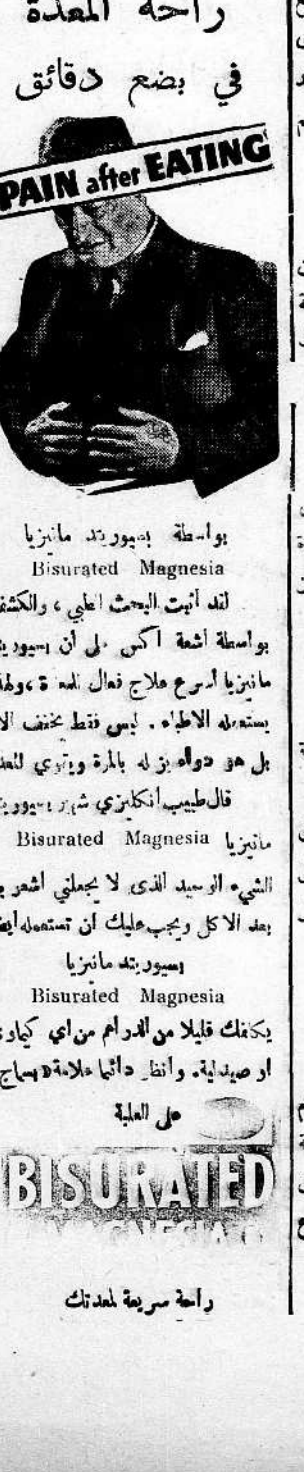 راحة المعدة
في بضع دقائق
PAIN after EATING
بواسطة بيسوريتد مانيزيا
Bisurated Magnesia
لقد أثبت البحث العلمي ، والكشف
بواسطة أشعة اكس على أن بيسوريتد
مانيزيا أسرع علاج فعال للمعدة ، ولهذا
يستعمله الاطباء . ليس فقط يخفف الا
بل هو دواء يزيله بالمرة ويقوي المعد
قال طبيب انكليزي شهير بيسوريتد
مانيزيا Bisurated Magnesia
الشيء الوحيد الذي لا يجعلني اشعر
بعد الاكل ويجب عليك ان تستعمله ايض
بيسوريتد مانيزيا
Bisurated Magnesia
يكلفك قليلا من الدراهم من اي كيماوي
او صيدلية. وانظر دائما علامة
على العلبة
BISURATED
MAGNESIA
راحة سريعة لمعدتك